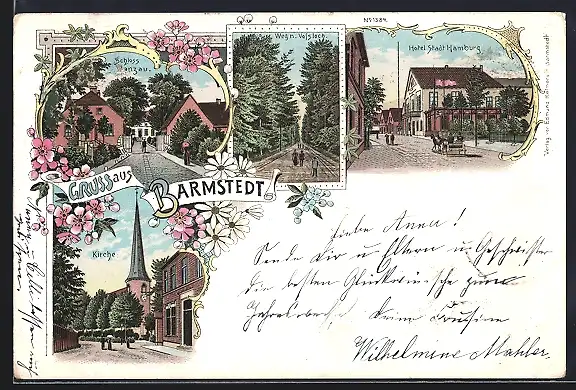 No 1384.
Schloss
Ranzau.
Weg n. Voßloch.
Hotel Stadt Hamburg.
Verlag von Edmund Körner, Barmstedt
GRUSS AUS
BARMSTEDT
Kirche
Liebe Anna!
Sende dir u Eltern u. Geschwister
die besten Glückwünsche zum
Deine Cousine
Wilhelmine Mahler.